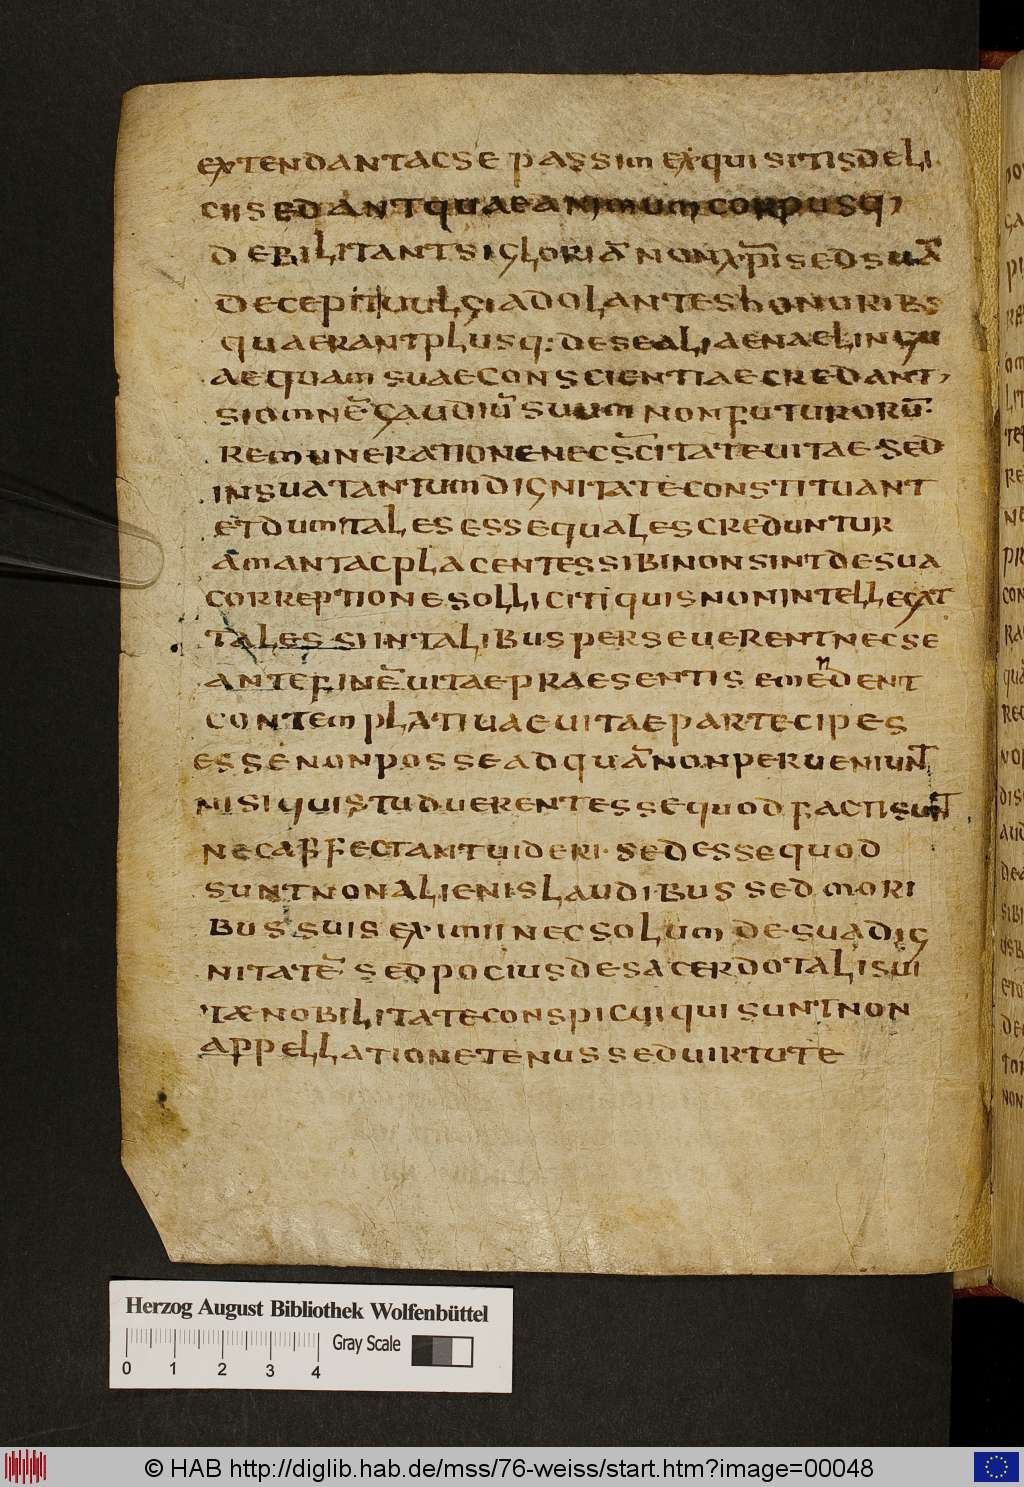 extendant ac se passim exquisitis deli
ciis edant quae animum corpusq,
debilitant si gloriā non xp̄i sed suā
decepti vulgi adolantes honorib;
quaerant plusq: de se aliaenae lingu
ae quam suae conscientiae credant,
si omnē gaudiū suum non futurorū:
remuneratione nec sc̄itate vitae sed
in sua tantum dignitate constituant
et dum tales esse quales creduntur
amant ac placentes sibi non sint de sua
correptione solliciti quis non intellegat
tales si in talibus perseverent nec se
ante finē vitae praesentis emendent
contemplativae vitae participes
esse non posse ad quā non perveniunt
nisi qui studuerentes se quod facti sunt
nec affectant videri. sed esse quod
sunt non alienis laudibus sed mori
bus suis eximii nec solum de sua dig
nitatē sed pocius de sacerdotalis vi
tæ nobilitate conspicui qui sunt non
appellatione tenus sed virtute
Herzog August Bibliothek Wolfenbüttel
Gray Scale
0 1 2 3 4
© HAB http://diglib.hab.de/mss/76-weiss/start.htm?image=00048